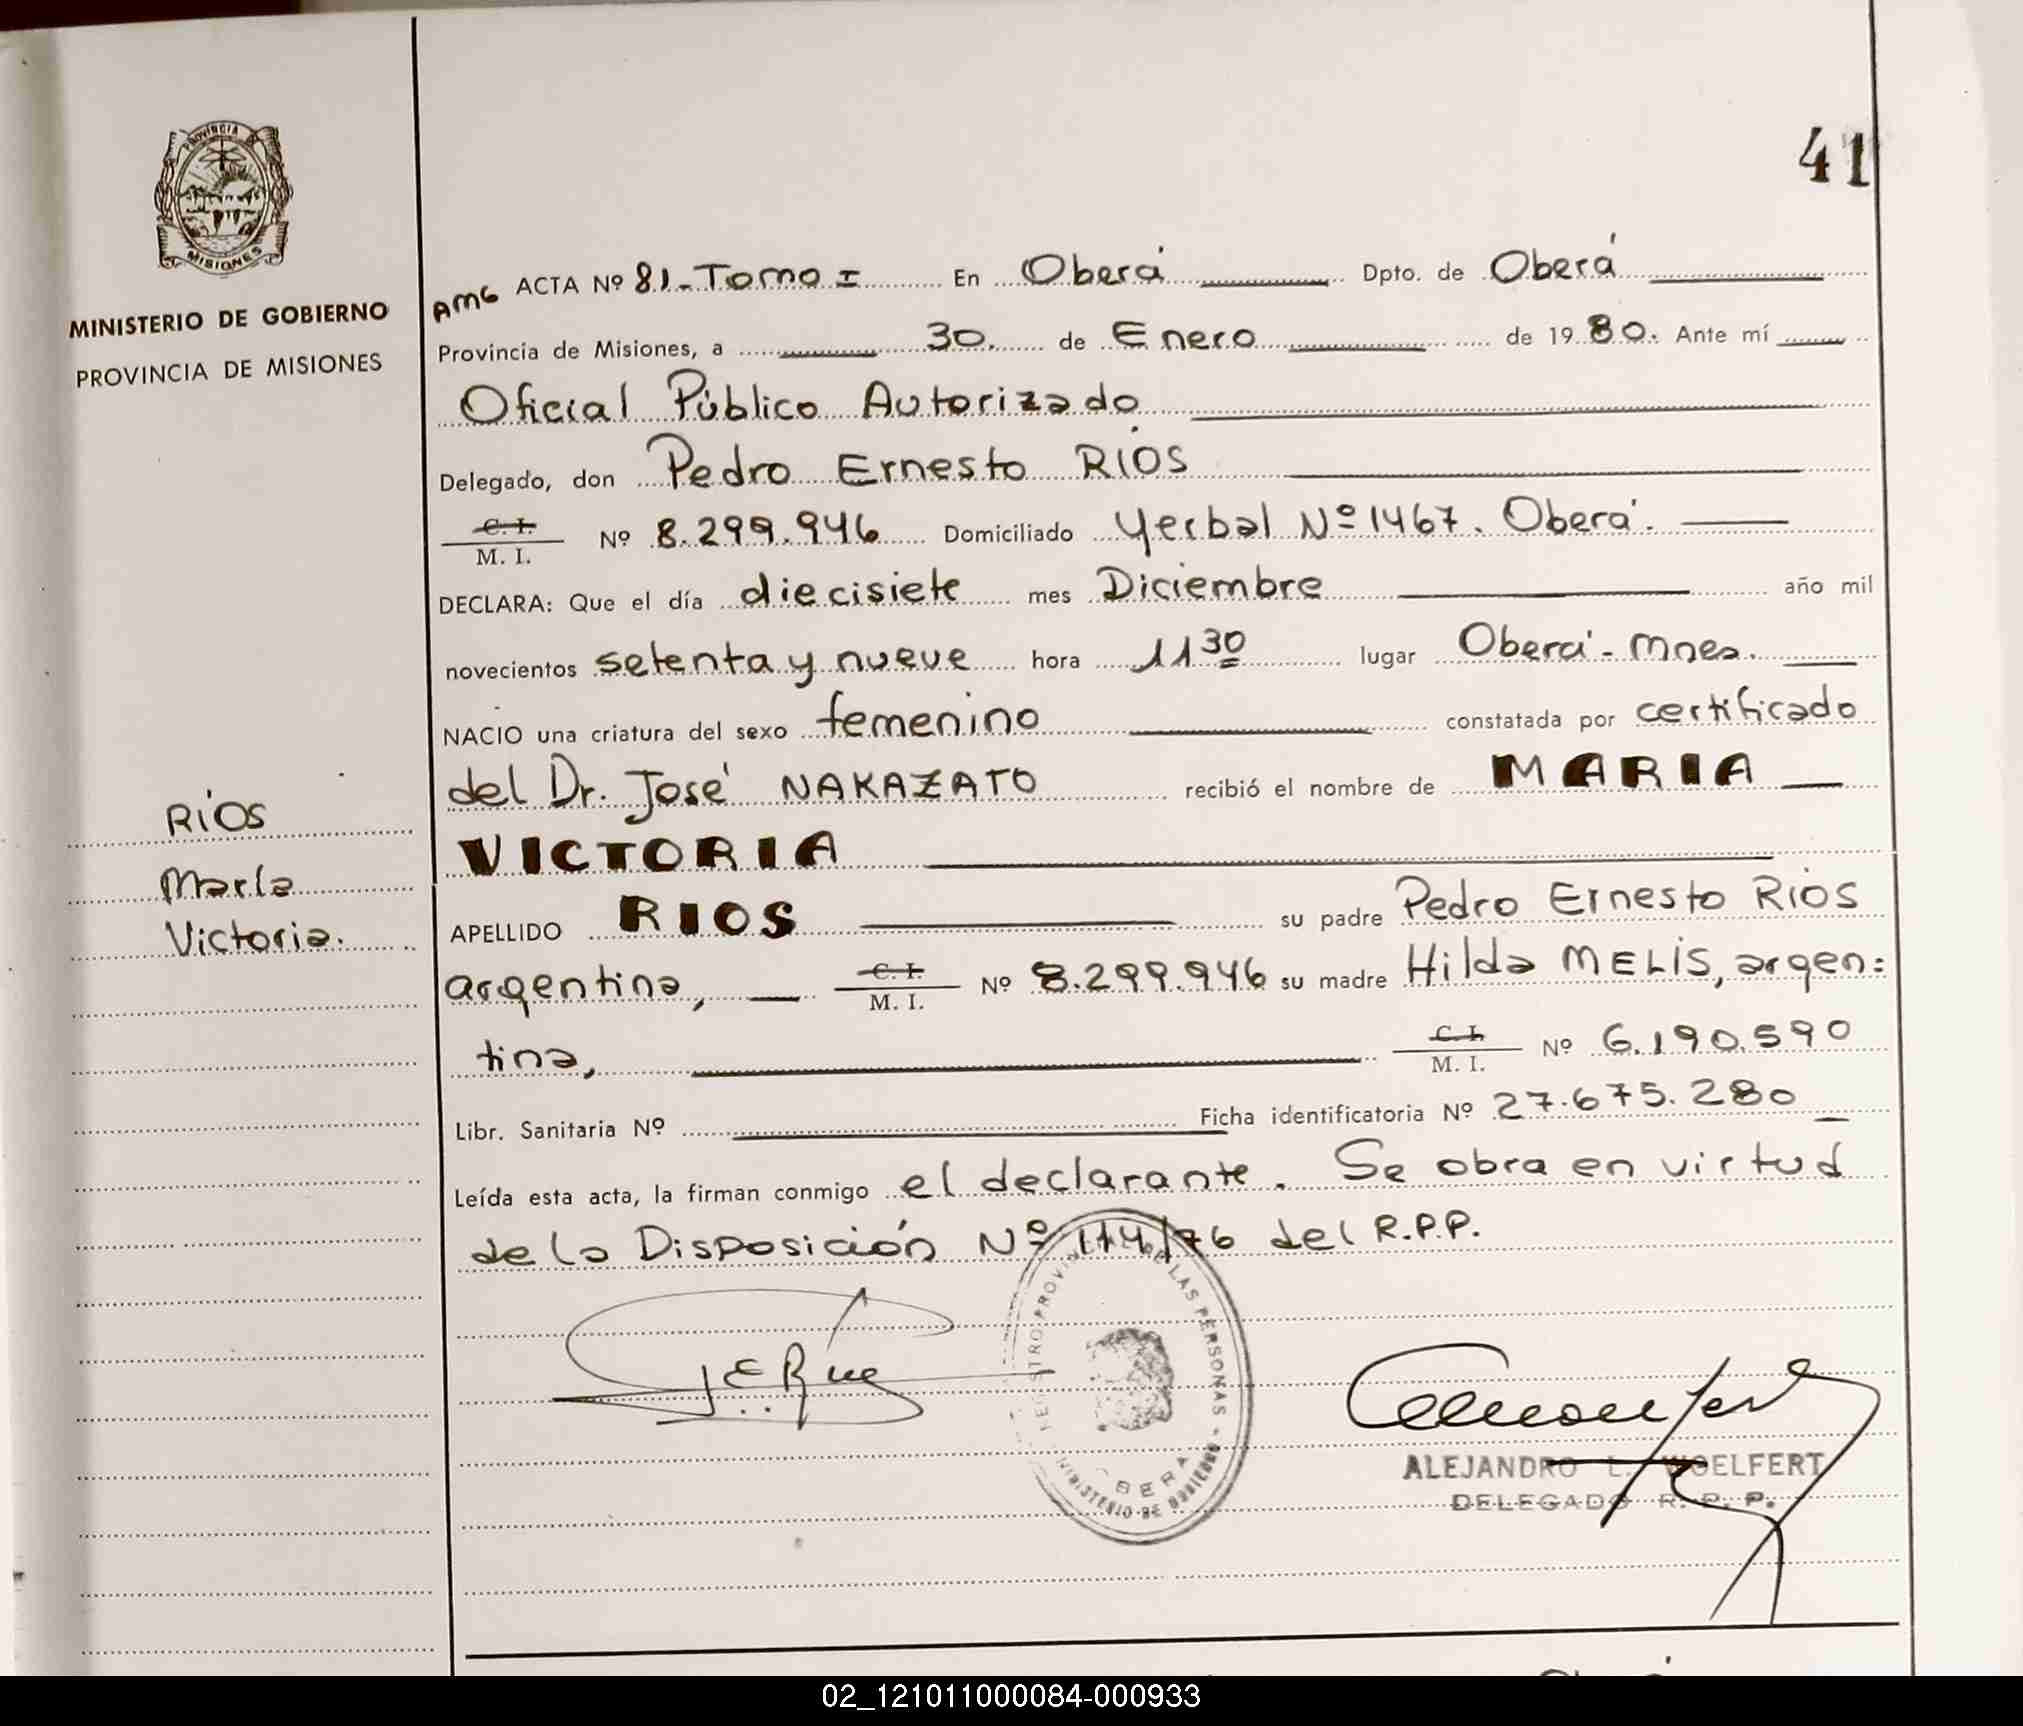 41
PROVINCIA
MISIONES
MINISTERIO DE GOBIERNO
PROVINCIA DE MISIONES
RÍOS
María
Victoria.
AMG ACTA Nº 81.-Tomo I En Oberá Dpto. de Oberá
Provincia de Misiones, a 30. de Enero de 1980. Ante mí
Oficial Público Autorizado
Delegado, don Pedro Ernesto RIOS
C. I. / M. I. Nº 8.299.946 Domiciliado Yerbal Nº 1467. Oberá.
DECLARA: Que el día diecisiete mes Diciembre año mil
novecientos setenta y nueve hora 11 30 lugar Oberá - Mnes.
NACIO una criatura del sexo femenino constatada por certificado
del Dr. José NAKAZATO recibió el nombre de MARIA
VICTORIA
APELLIDO RIOS su padre Pedro Ernesto RIOS
argentino, C. I. / M. I. Nº 8.299.946 su madre Hilda MELIS, argen=
tina, C. I. / M. I. Nº 6.190.590
Libr. Sanitaria Nº Ficha identificatoria Nº 27.675.280
Leída esta acta, la firman conmigo el declarante. Se obra en virtud
de la Disposición Nº 114/76 del R.P.P.
REGISTRO PROVINCIAL DE LAS PERSONAS - MINISTERIO DE GOBIERNO
OBERA
ALEJANDRO L. WOELFERT
DELEGADO R. P. P.
02_121011000084-000933